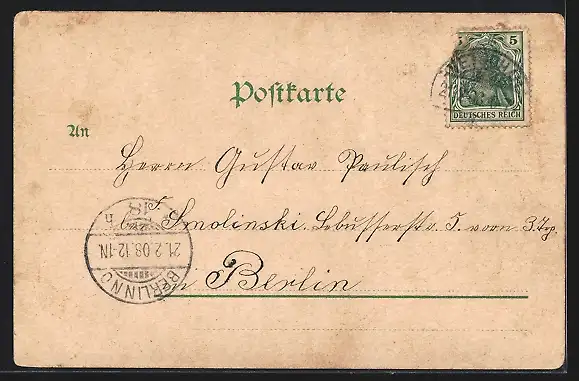 5
DEUTSCHES REICH
Postkarte
An
Herrn Gustav Paulisch
bei Smolinski. Lebusserstr. 5. vorn 3. Trp.
in Berlin
BERLIN N O
21.2.08.12-1N.
18